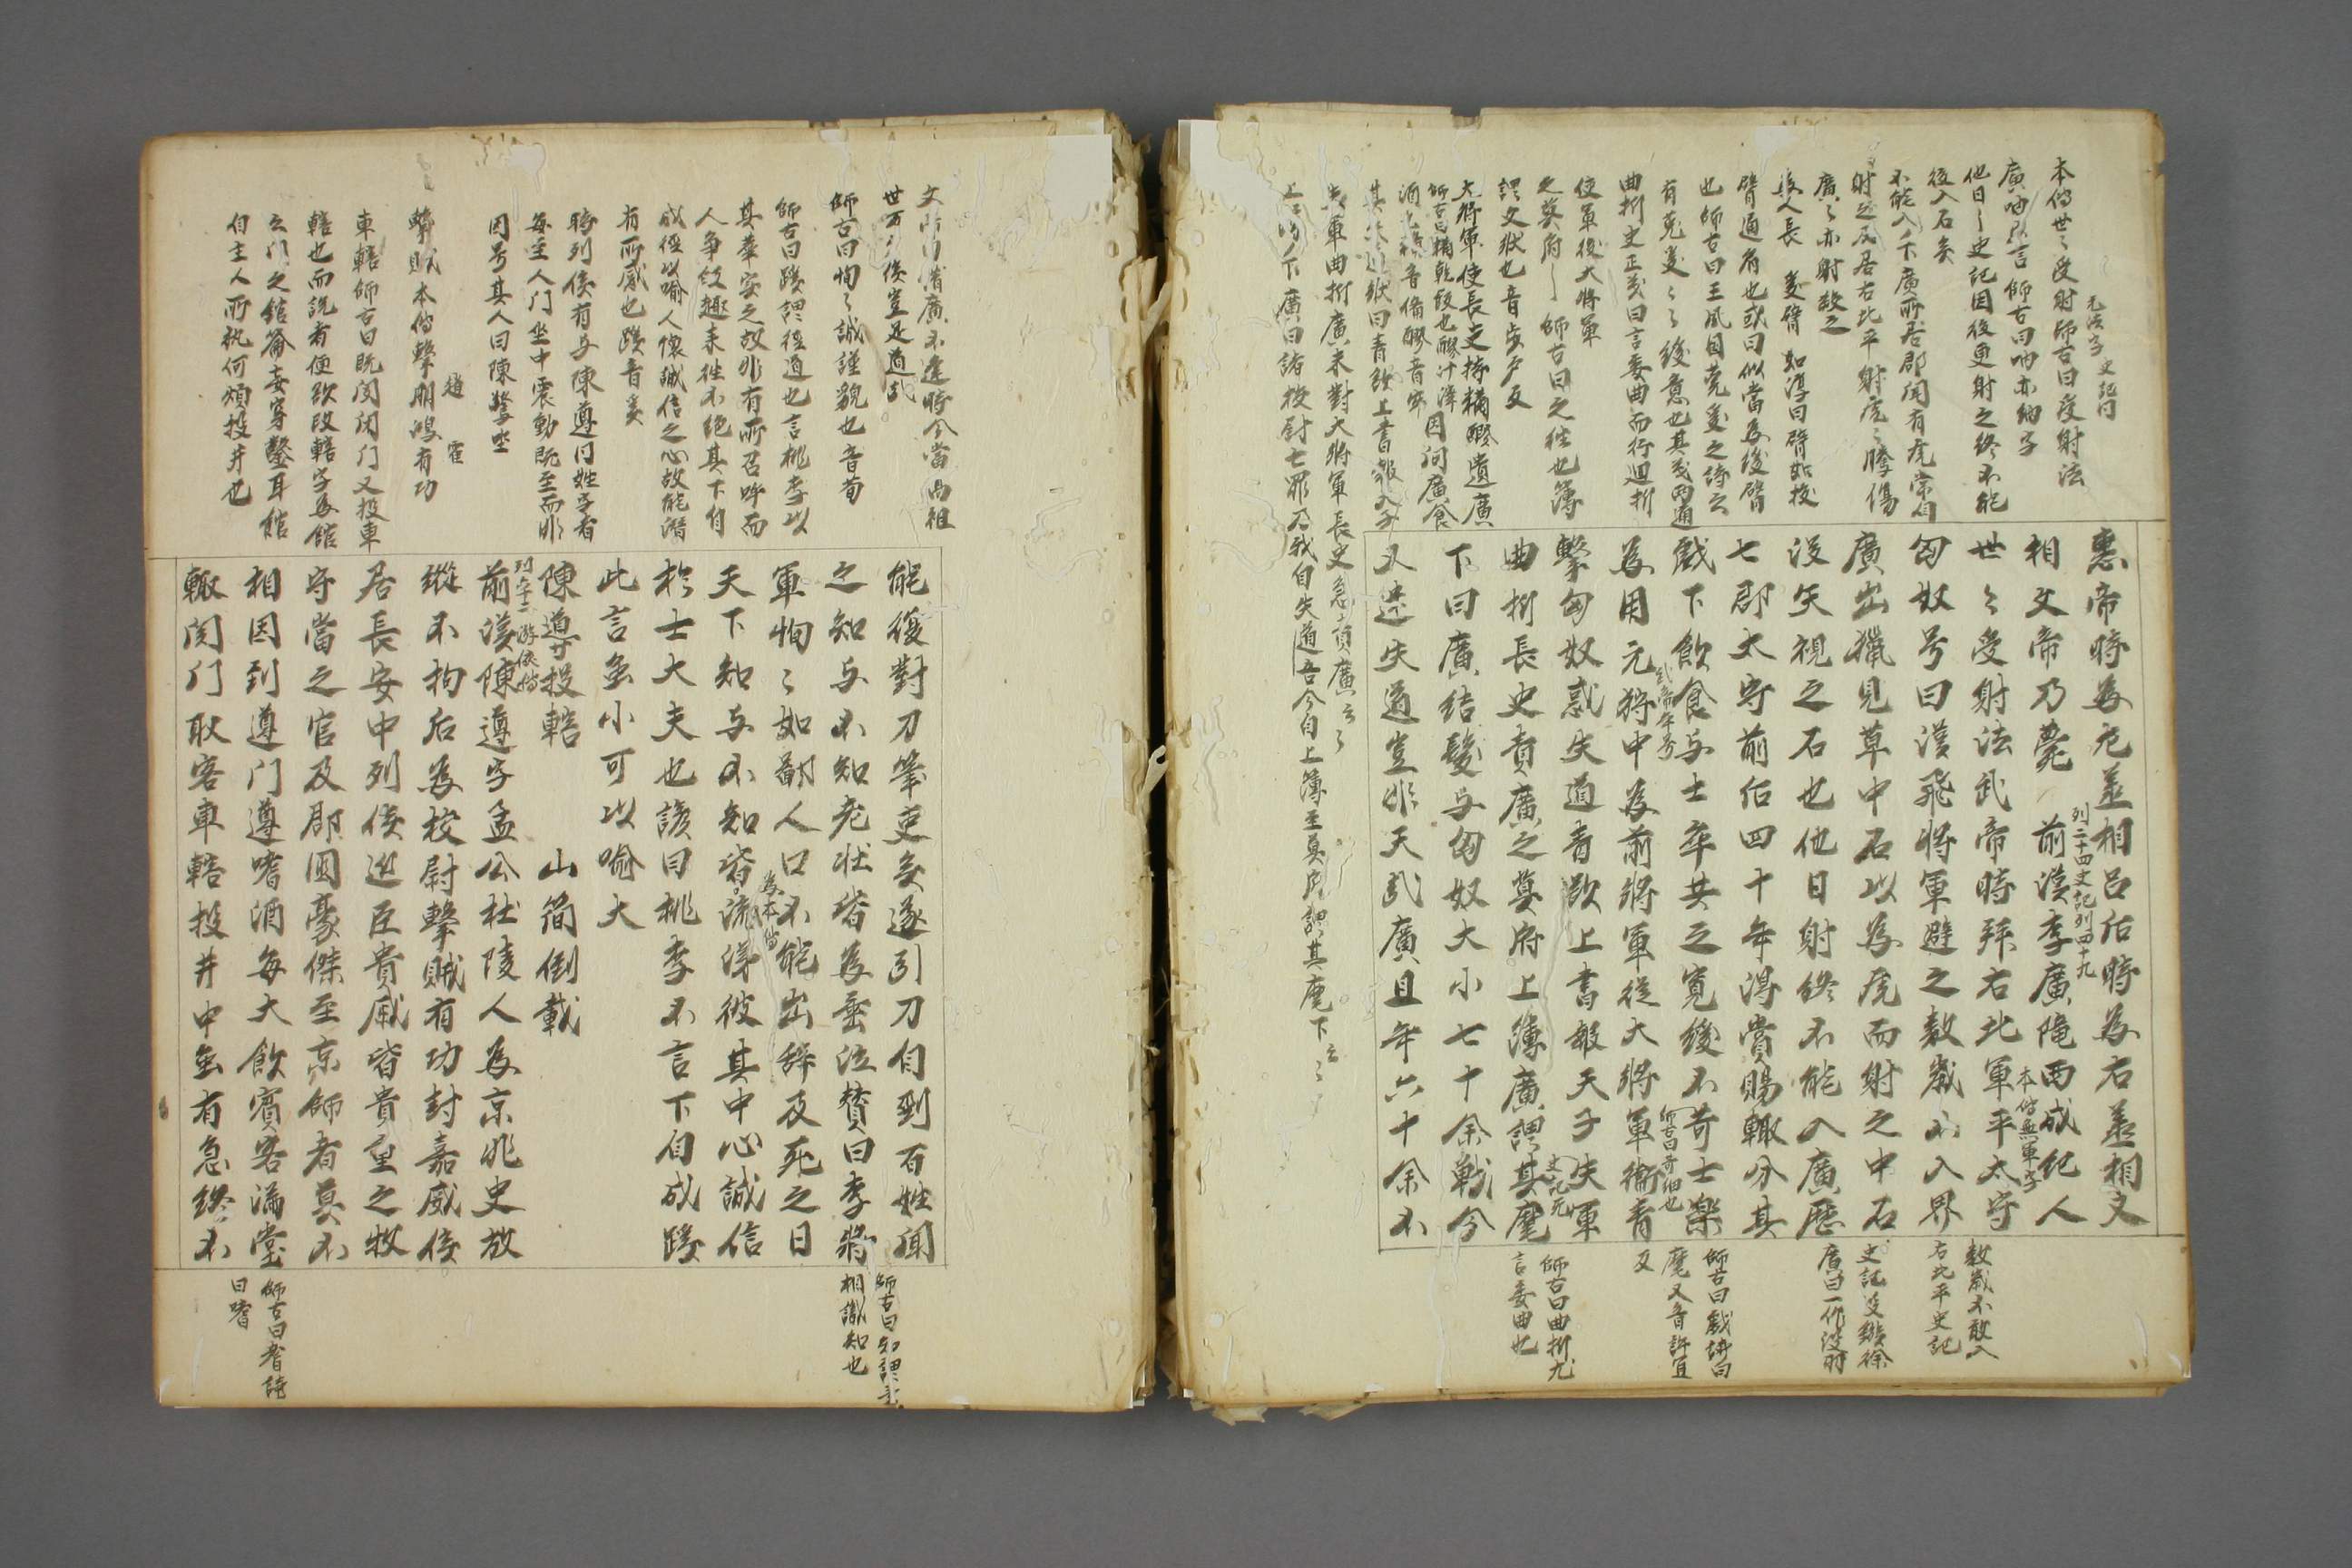 惠帝時為左丞相呂后時為右丞相文
相文帝乃薨　前漢李廣隴西成紀人
列二十四史記列四十九
本傳無軍字
世々受射法武帝時拜右北軍平太守
匈奴号曰漢飛將軍避之数歳不入界
廣出獵見草中石以為虎而射之中石
没矢視之石也他日射終不能入廣歴
七郡太守前后四十年得賞賜輙分其
戯下飲食与士卒共之寛緩不苛士楽
武帝年号
師古曰苛細也
為用元狩中為前將軍從大將軍衛青
擊匈奴惑失道青欲上書報天子失軍
曲折長史責廣之莫府上簿廣謂其麾
史記无
下曰廣结髪与匈奴大小七十余戦今
又迷失道豈非天哉廣且年六十余不
本傳世々受射師古曰受射法
无法字　史記同
廣吶口言　師古曰吶亦訥字
他日〡史記因復更射之終不能
復入石矣
不能入〡下廣所居郡聞有虎常自
射之及居右北平射虎々騰傷
廣々亦射殺之
為人長　爰臂　如淳曰臂如猨
臂通肩也或曰似當為緩臂
也師古曰王風国菟爰之詩云
有菟爰々緩意也其義両通
曲折史正義曰言委曲而行迴折
使軍後大將軍
之莫府〡師古曰之往也簿
謂文狀也音步戶反
大將軍使長史持糒醪遺廣
師古曰糒乾飯也醪汁滓
酒也糒音備醪音牢
因問廣食
其失道狀曰青欲上書報天子
失軍曲折廣未對大將軍長史急責廣云々
下廣曰諸校尉亡罪乃我自失道吾今自上簿至莫府謂其麾下云々
数歳不敢入
右北平史記
史記没鏃徐
廣曰一作没羽
師古曰戯讀曰
麾又音許宜
反
師古曰曲折尤
言委曲也
能復對刀筆吏矣遂引刀自剄百姓聞
之知与不知老壮皆為垂泣賛曰李將
軍恂々如鄙人口不能出辞及死之日
天下知与不知皆流涕彼其中心誠信
為本傳
於士大夫也諺曰桃李不言下自成蹊
此言虽小可以喻大
陳遵投轄　　山簡倒載
列六十二游俠傳
前漢陳遵字孟公杜陵人為京兆史放
縱不拘后為校尉擊賊有功封嘉威侯
居長安中列侯近臣貴戚皆貴重之牧
守當之官及郡國豪傑至京師者莫不
相因到遵門遵嗜酒每大飲賓客滿堂
輙関门取客車轄投井中虽有急終不
文帝曰惜廣不逢時令當高祖
世万戶侯豈足道哉
師古曰恂々誠謹貌也音荀
師古曰蹊謂徑道也言桃李以
其華実之故非有所召呼而
人争歸趣来往不絶其下自
成徑以喻人懐誠信之心故能潛
有所感也蹊音奚
時列侯有与陳遵同姓字者
每至人门坐中震動既至而非
因号其人曰陳驚坐
擊賊本傳擊朋鴻有功
趙　霍
車轄師古曰既関閉门又投車
轄也而説者便欲改轄字為錧
云门之錧籥妄穿鑿耳錧
自主人所執何煩投井也
師古曰知謂素
相識知也
師古曰耆讀
曰嗜